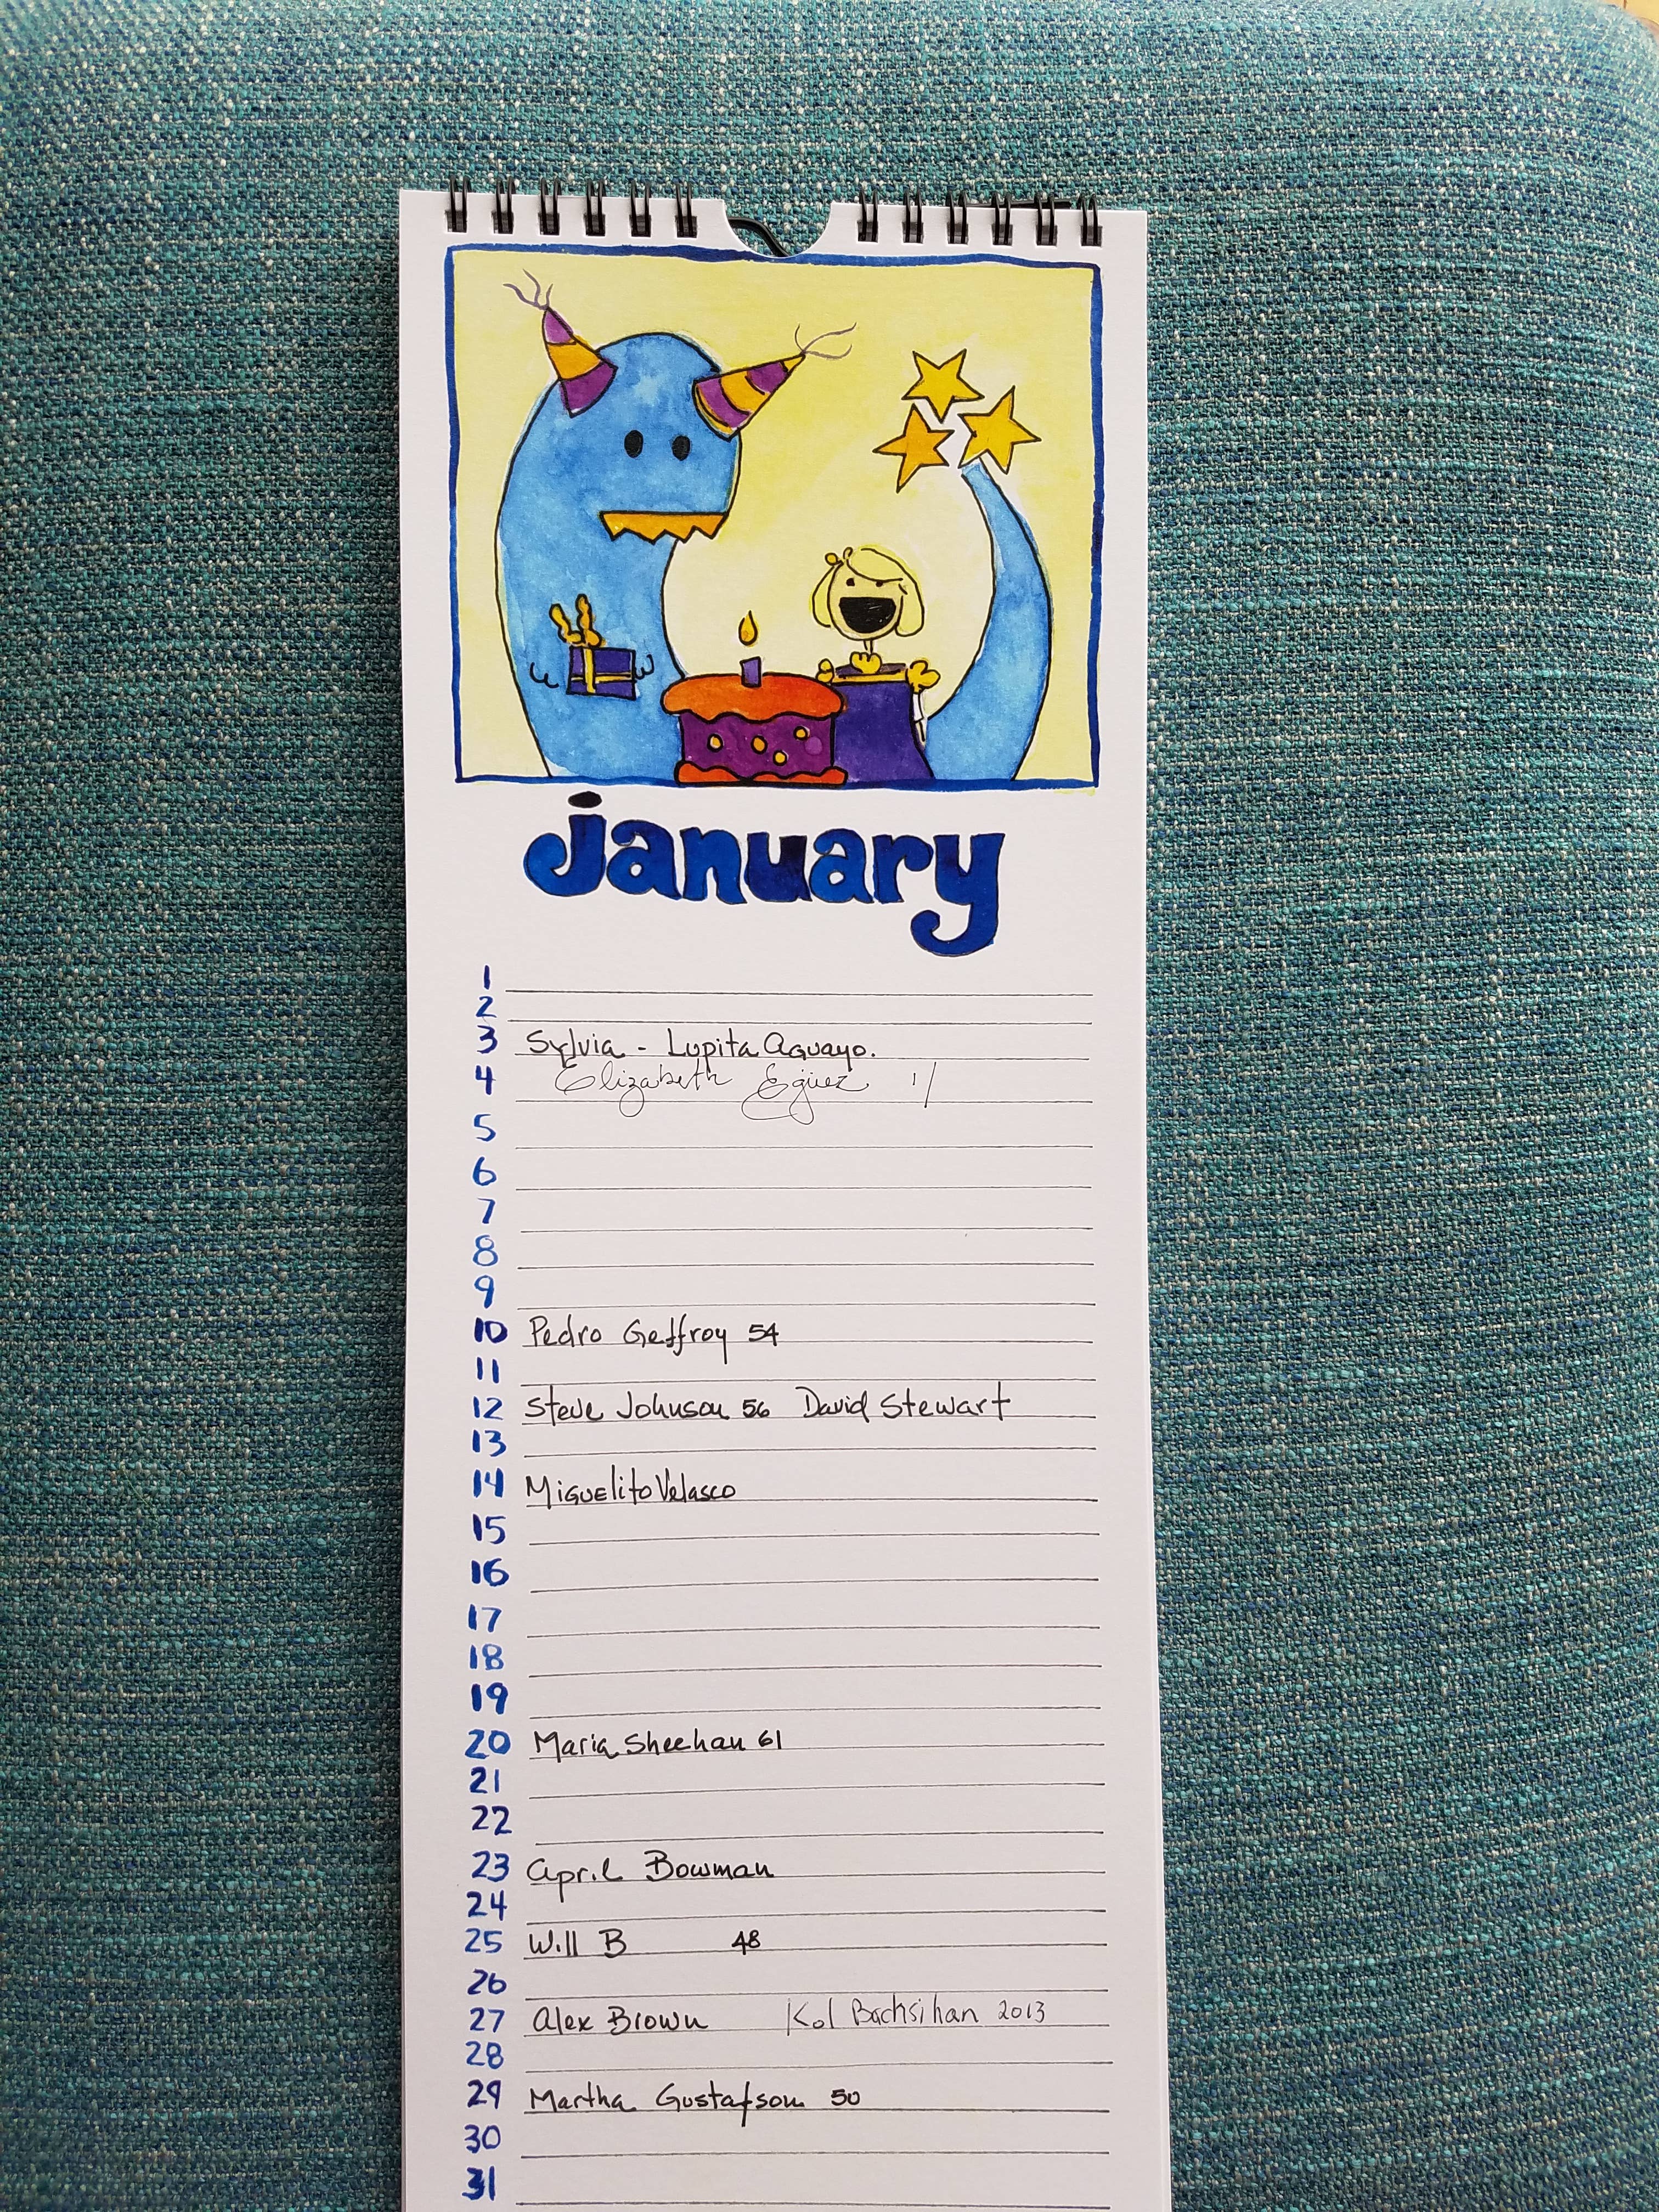 january
1
2
3 Sylvia - Lupita Aguayo.
4 Elizabeth Egüez
5
6
7
8
9
10 Pedro Geffroy 54
11
12 Steve Johnson 56 David Stewart
13
14 Miguelito Velasco
15
16
17
18
19
20 Maria Sheehan 61
21
22
23 April Bowman
24
25 Will B 48
26
27 Alex Brown Kol Bachsihan 2013
28
29 Martha Gustafson 50
30
31